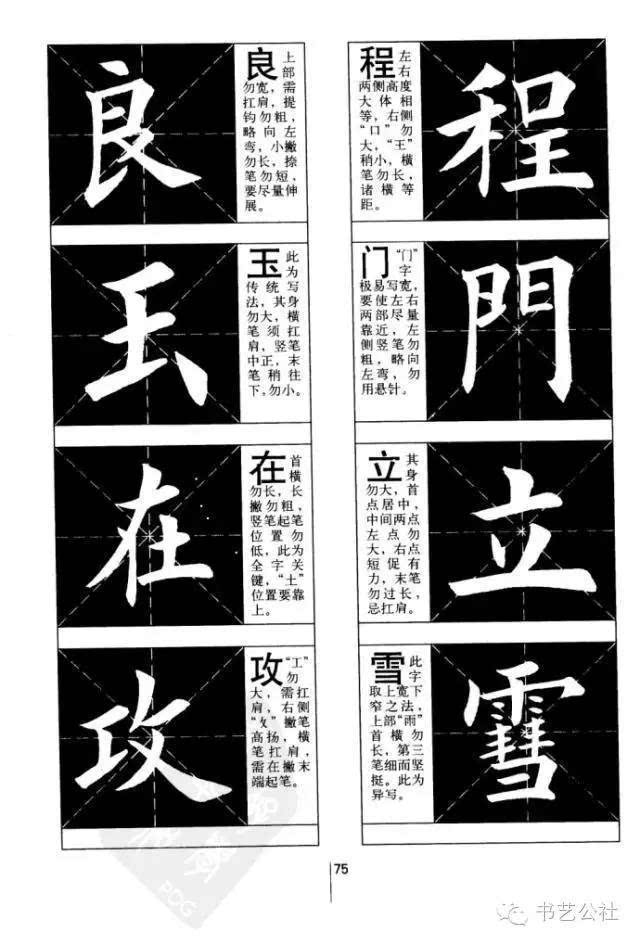 程
程左
右
两侧高度
大体相
等，右侧
“口”勿
大，“王”
稍小，横
笔勿长，
诸横等
距。
門
门“门”
字
极易写宽，
要使左右
两部尽量
靠近，左
侧竖笔勿
粗，略向
左弯，勿
用悬针。
立
立其
身
勿大，首
点居中，
中间两点
左点勿
大，右点
短促有
力，末笔
勿过长，
忌扛肩。
䨮
雪此
字
取上宽下
窄之法，
上部“雨”
首横勿
长，第三
笔细而竖
挺。此为
异写。
良
良上
部
勿宽，需
扛肩，提
钩勿粗，
略向左
弯，小撇
勿长，捺
笔勿短，
要尽量伸
展。
玉
玉此
为
传统写
法，其身
勿大，横
笔须扛
肩，竖笔
中正，末
笔稍往
下，勿小。
在
在首
横
勿长，长
撇勿粗，
竖笔起笔
位置勿
低，此为
全字关
键，“土”
位置要靠
上。
攻
攻“工”
勿
大，需扛
肩，右侧
“攵”撇笔
高扬，横
笔扛肩，
需在撇末
端起笔。
75
PDG
书艺公社